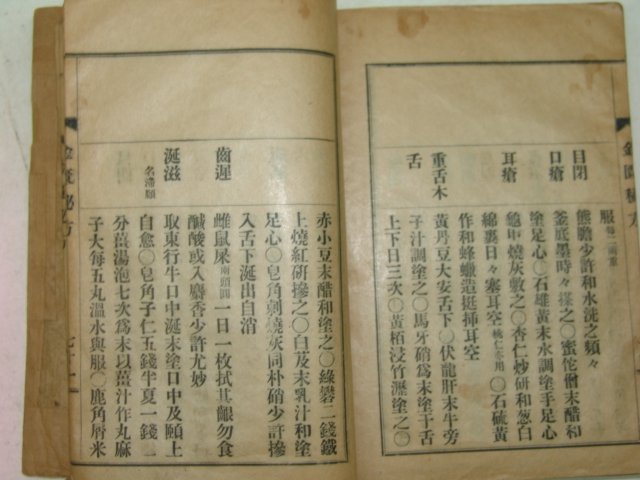 服每二兩重
目閉
熊膽少許和水洗之頻々
口瘡
釜底墨時々搽之〇蜜佗僧末醋和
塗足心〇石雄黃末水調塗手足心
耳瘡
龜甲燒灰敷之〇杏仁炒硏和葱白
綿裹日々塞耳空桃仁亦用〇石硫黃
作和蜂蠟造挺揷耳空
重舌木舌
黃丹豆大安舌下〇伏龍肝末牛旁
子汁調塗之〇馬牙硝爲末塗于舌
上下日三次〇黃栢浸竹瀝塗之〇
赤小豆末醋和塗之〇綠礬二錢鐵
上燒紅硏摻之〇白及末乳汁和塗
足心〇皂角刺燒灰同朴硝少許摻
入舌下涎出自消
齒遲
雌鼠屎兩頭圓一日一枚拭其齦勿食
醎酸或入麝香少許尤妙
涎滋名滯頤
取東行牛口中涎末塗口中及頤上
自愈〇皂角子仁五錢半夏一錢二
分薑湯泡七次爲末以薑汁作丸麻
子大每五丸溫水與服〇鹿角屑米